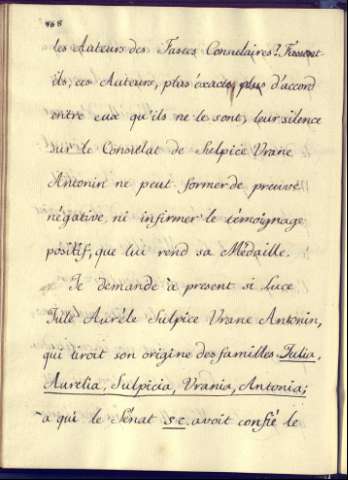 les Auteurs des Fastes Consulaires? Fussent
ils, ces Auteurs, plus éxacts, plus d'accord
entre eux qu'ils ne le sont, leur silence
sur le Consulat de Sulpice Vrane
Antonin ne peut former de preuve
négative, ni infirmer le témoignage
positif, que lui rend sa Médaille.
Je demande à present si Luce
Jule Auréle Sulpice Vrane Antonin,
qui tiroit son origine des familles Julia,
Aurelia, Sulpicia, Vrania, Antonia;
a qui le Sénat S.C. avoit confié le